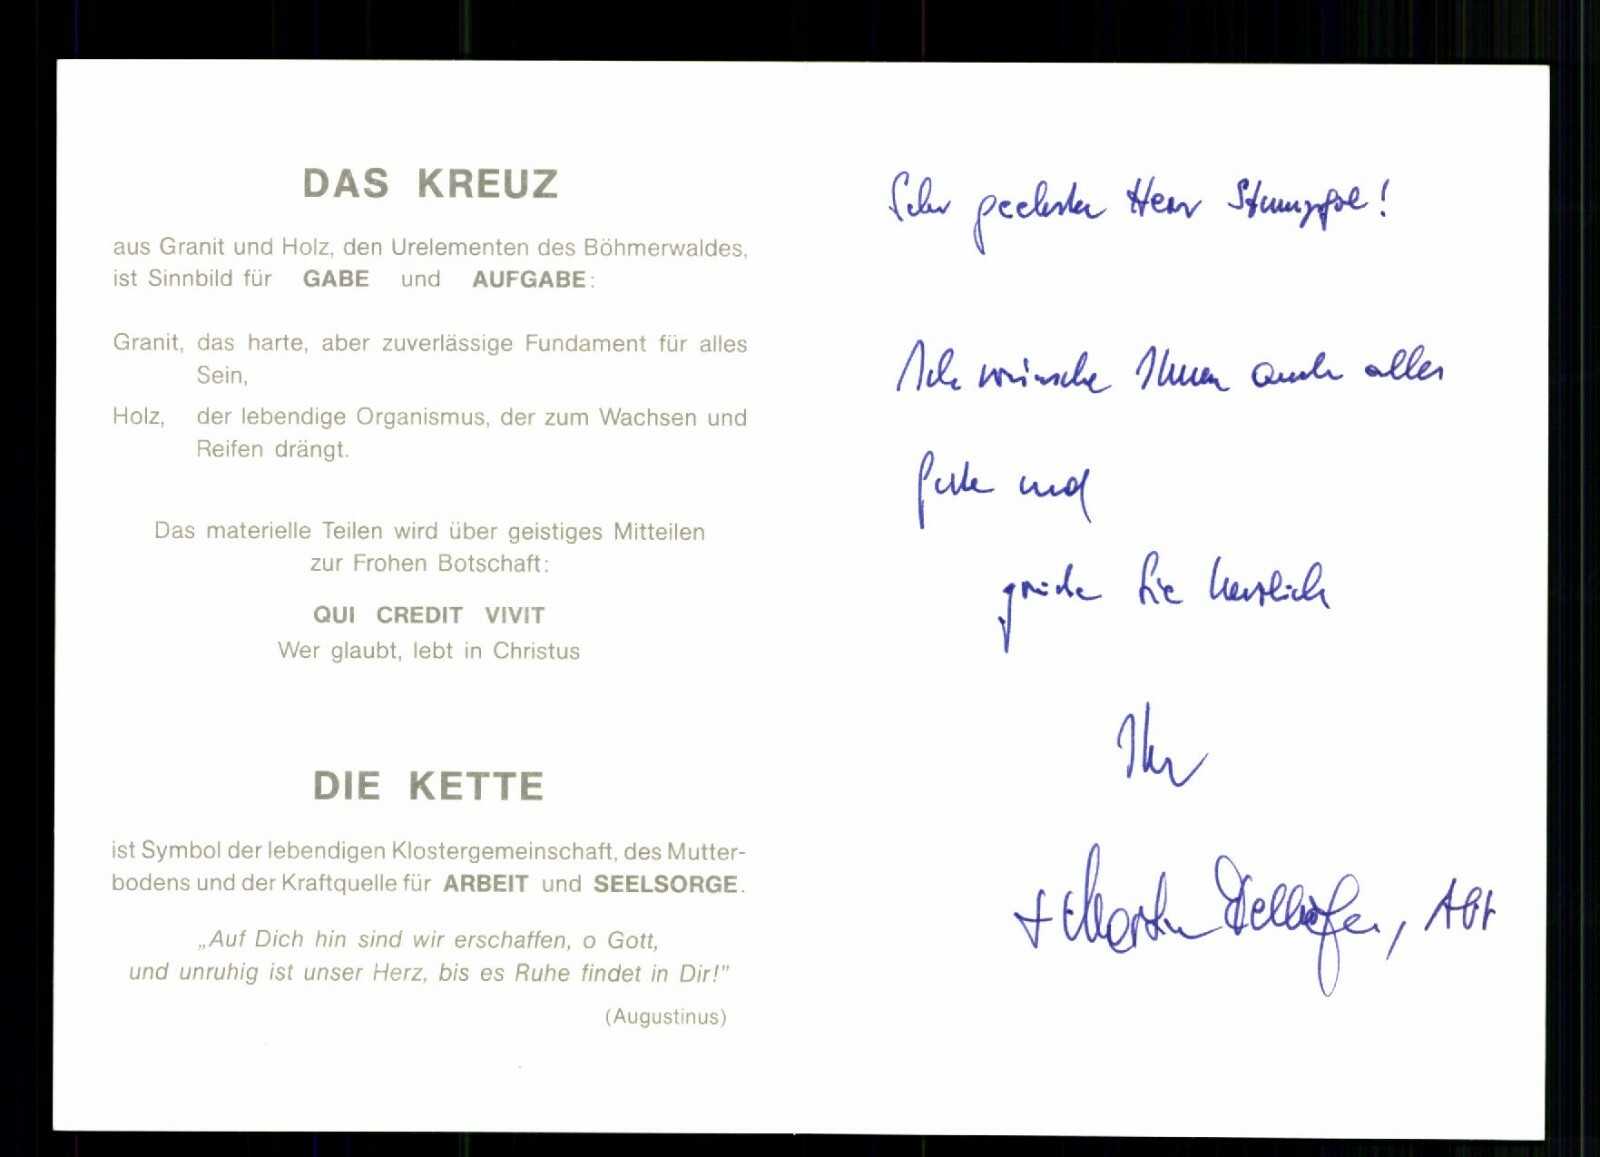 DAS KREUZ
aus Granit und Holz, den Urelementen des Böhmerwaldes,
ist Sinnbild für GABE und AUFGABE:
Granit, das harte, aber zuverlässige Fundament für alles
Sein,
Holz, der lebendige Organismus, der zum Wachsen und
Reifen drängt.
Das materielle Teilen wird über geistiges Mitteilen
zur Frohen Botschaft:
QUI CREDIT VIVIT
Wer glaubt, lebt in Christus
DIE KETTE
ist Symbol der lebendigen Klostergemeinschaft, des Mutter-
bodens und der Kraftquelle für ARBEIT und SEELSORGE.
„Auf Dich hin sind wir erschaffen, o Gott,
und unruhig ist unser Herz, bis es Ruhe findet in Dir!"
(Augustinus)
Sehr geehrter Herr
Ich wünsche Ihnen auch alles
Gute und
grüße Sie herzlich
Ihr
+ Martin , Abt